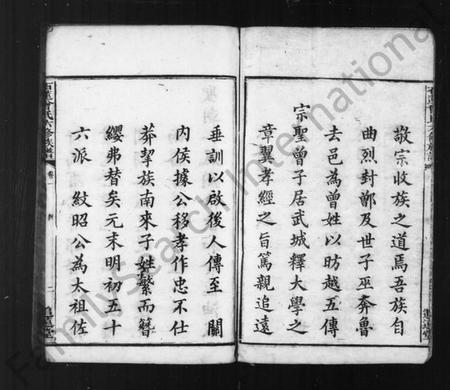 敬宗收族之道焉吾族自
曲烈封鄫及世子巫奔魯
去邑為曾姓以昉越五傳
宗聖曾子居武城釋大學之
章翼孝經之旨篤親追遠
垂訓以啟後人傳至關
內侯據公移孝作忠不仕
莽挈族南來子姓繁而簪
纓弗替矣元末明初五十
六派紋昭公為太祖佐
FamilySearch International